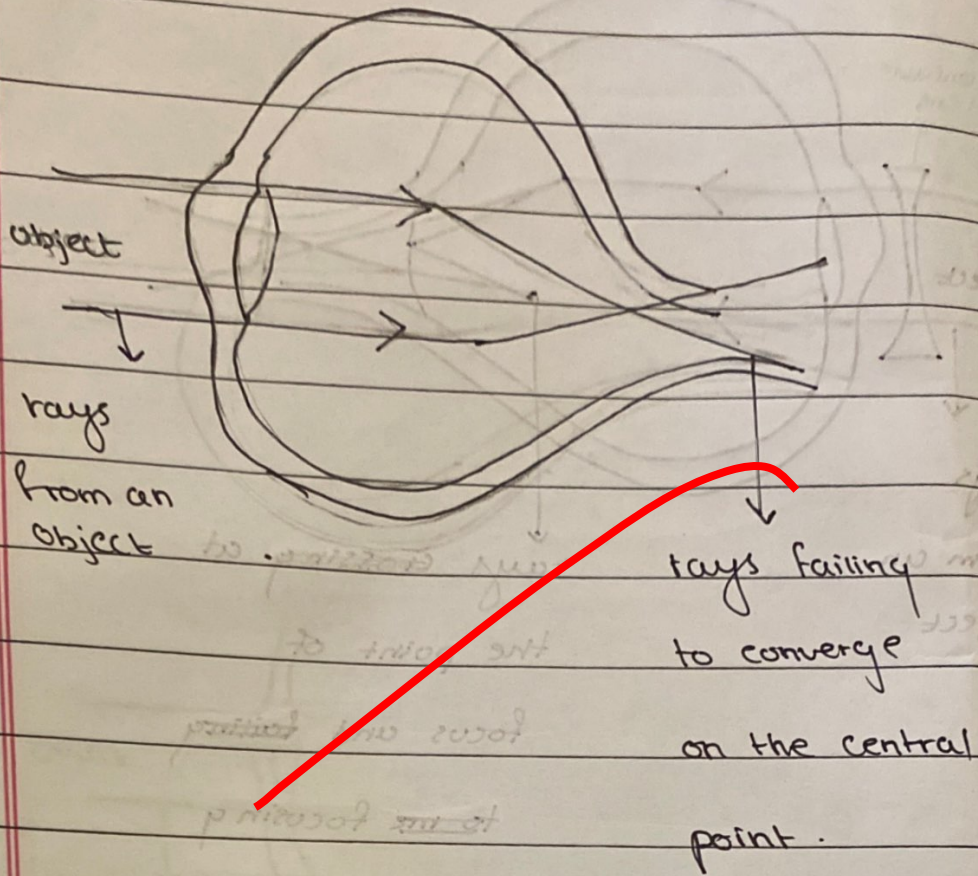 object
rays
from an
object
rays failing
to converge
on the central
point.